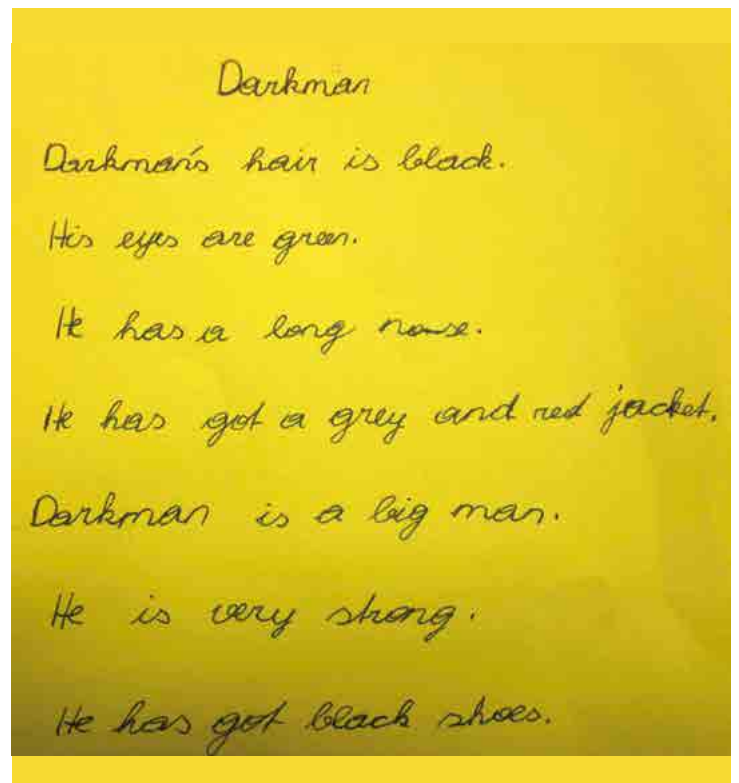 Darkman
Darkman's hair is black.
His eyes are green.
He has a long nose.
He has got a grey and red jacket.
Darkman is a big man.
He is very strong.
He has got black shoes.